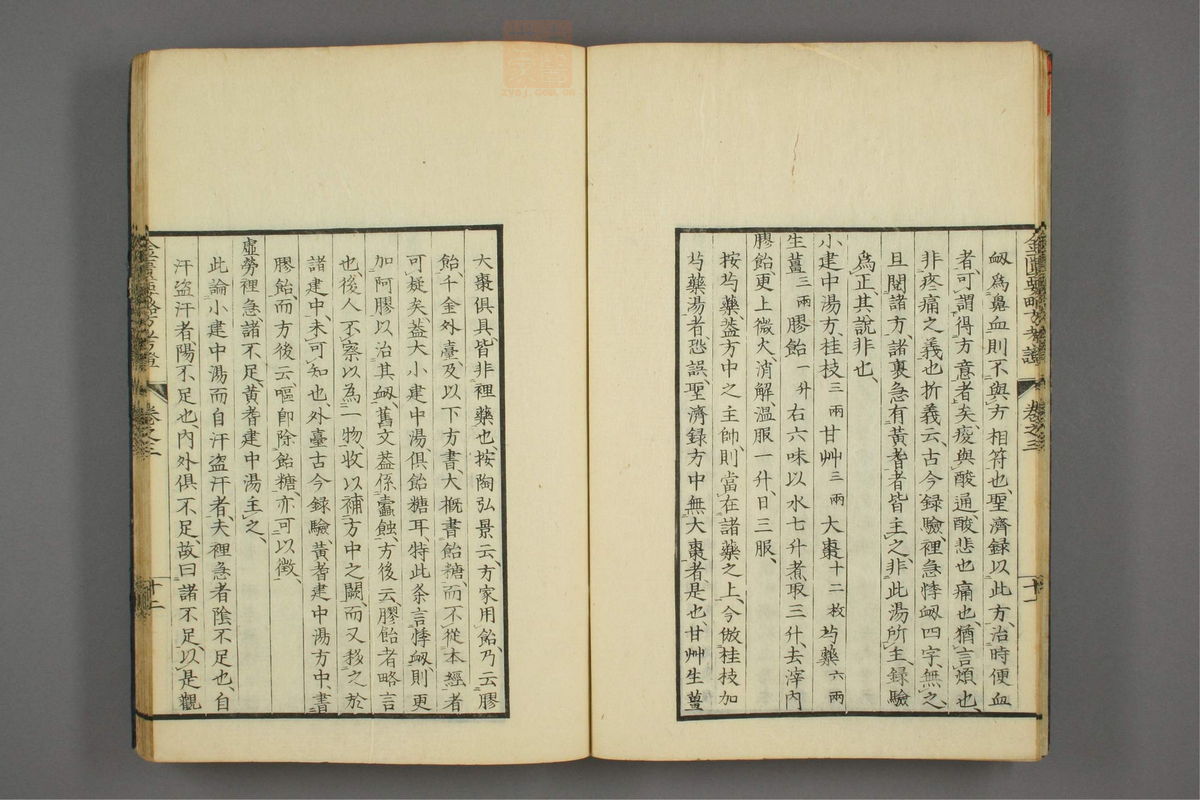 衂爲鼻血則不與方相符也聖濟録以此方治時便血
者可謂得方意者矣痠與酸通酸悲也痛也猶言煩也
非疼痛之義也折義云古今録驗裡急悸衂四字無之
旦閱諸方諸裏急有黄耆者皆主之非此湯所主録驗
爲正其說非也
小建中湯方桂枝三兩甘艸三兩大棗十二枚芍藥六兩
生薑三兩膠飴一升右六味以水七升煮取三升去滓内
膠飴更上微火消解温服一升日三服
按芍藥蓋方中之主帥則當在諸藥之上今倣桂枝加
芍藥湯者恐誤聖濟録方中無大棗者是也甘艸生薑
大棗俱具皆非裡藥也按陶弘景云方家用飴乃云膠
飴千金外臺及以下方書大概書飴糖而不從本經者
可疑矣蓋大小建中湯俱飴糖耳特此条言悸衂則更
加阿膠以治其衂舊文蓋係蠹蝕方後云膠飴者略言
也後人不察以為一物收以補方中之闕而又移之於
諸建中未可知也外臺古今録驗黄耆建中湯方中書
膠飴而方後云嘔卽除飴糖亦可以徵
虛勞裡急諸不足黄耆建中湯主之
此論小建中湯而自汗盗汗者夫裡急者陰不足也自
汗盗汗者陽不足也内外俱不足故曰諸不足以是觀
金匱要略方考證
卷之三
十一
金匱要略方考證
卷之三
十二